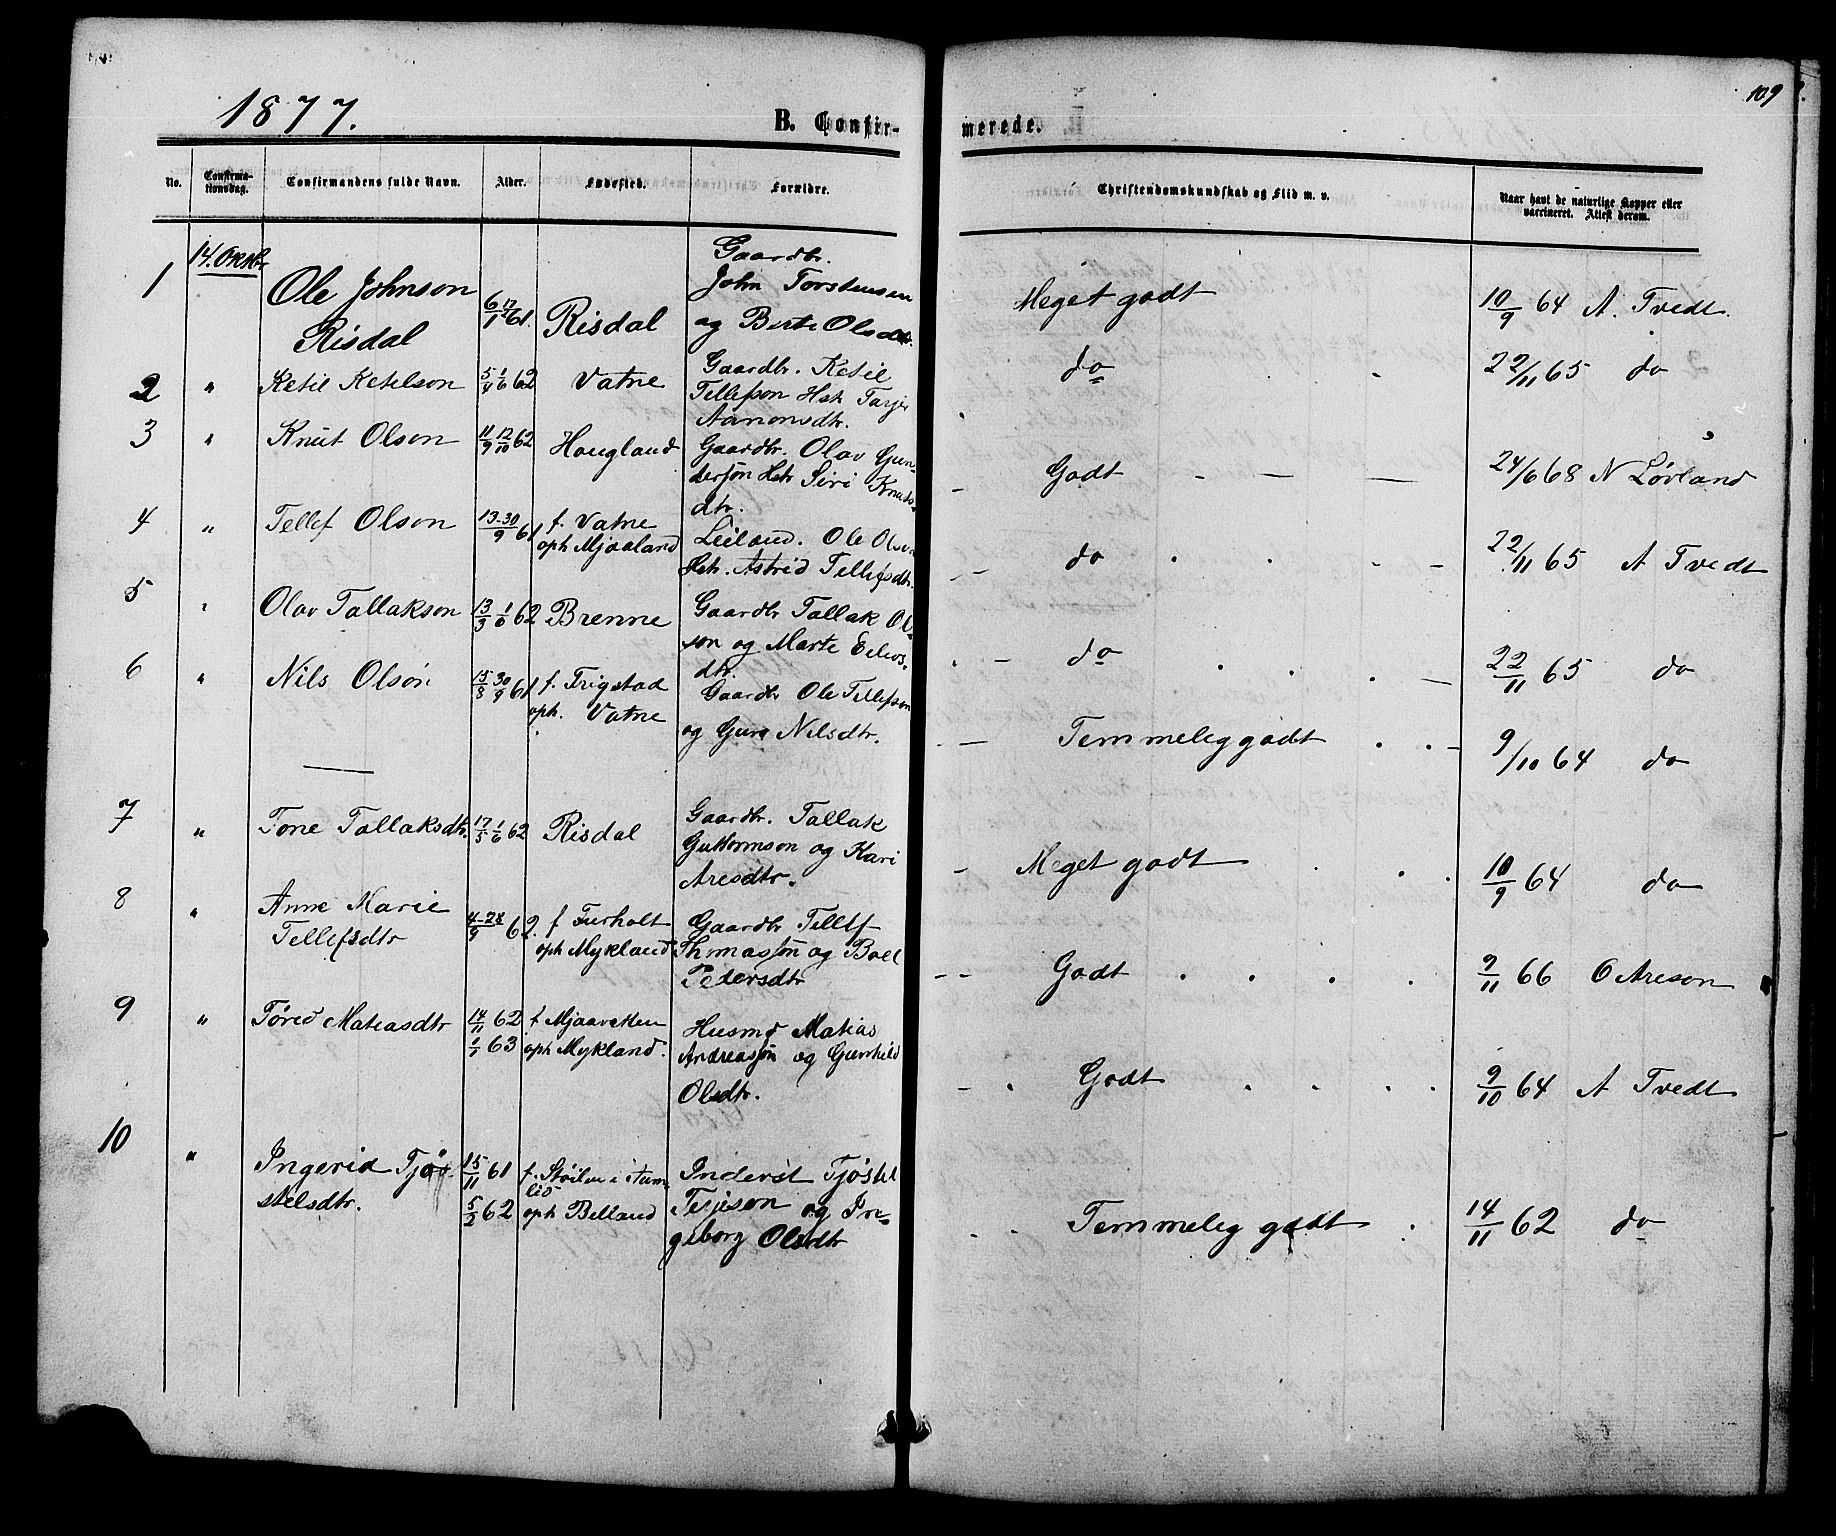 109
1877.
B. Confirmerede.
No.
Confirmationsdag.
Confirmandens fulde Navn.
Alder.
Fødested.
Forældre.
Christendomskundskab og Flid m. v.
Naar havt de naturlige Kopper eller
vaccineret. Attest derom.
1 14. Oktbr Ole Johnson Risdal 6/1 61. Risdal
Gaardbr.
John Torstensen
og Berte Olsdtr.
Meget godt 10/9 64 A. Tvedt.
2 " Ketil Ketelson 5/4 1/6 62 Vatne
Gaardbr. Ketil
Tellefson Hstr Tarjer
Aanonsdtr.
do 22/11 65 do
3 " Knut Olson 11/9 12/10 62 Hougland
Gaardbr. Olav Gun-
dersøn Hstr Siri Knuts-
dtr.
Godt 24/6 68 N Løvland
4 " Tellef Olson 13-30/9 61 f. Vatne
oph Mjaaland
Leiland. Ole Olson
Hstr. Astrid Tellefsdtr.
do 22/11 65 A Tvedt
5 " Olav Tallakson 13/3 1/6 62 Brenne
Gaardbr Tallak Ol-
son og Marte Eilevs-
dtr.
do 22/11 65 do
6 " Nils Olsøn 15/8 30/9 61 f. Trigstad
oph. Vatne
Gaardbr Ole Tellefson
og Guro Nilsdtr.
Temmelig godt 9/10 64 do
7 " Tone Tallaksdtr. 17/5 1/6 62 Risdal
Gaardbr. Tallak
Guttormson og Kari
Aresdtr.
Meget godt 10/9 64 do
8 " Anne Marie
Tellefsdtr
4-28/9 62. f Furholt
oph Mykland
Gaardbr Tellef
Thomassøn og Boel
Pedersdtr
Godt 9/11 66 O Areson
9 " Tøred Matiasdtr 14/11 62
1/1 63
f Mjaavatten
oph Mykland.
Husmd Matias
Andreasøn og Gunhild
Olsdtr.
Godt 9/10 64 A Tvedt
10 " Ingerid Tjøs-
stelsdtr.
15/11 61
5/2 62
f. Støilen i Aam-
lid
oph Belland
Inderst Tjøstel
Terjeson og In-
geborg Olsdtr
Temmelig godt 14/11 62 do